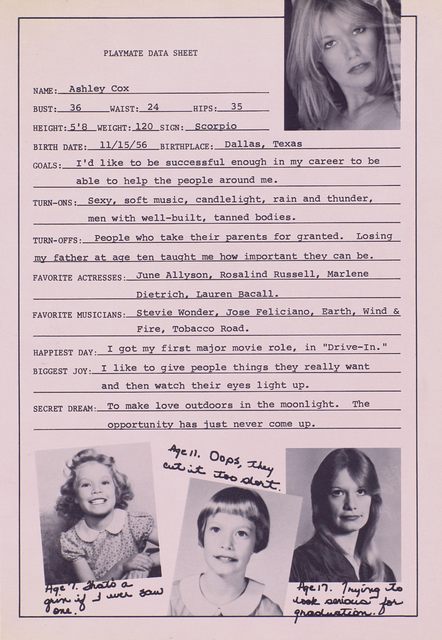 PLAYMATE DATA SHEET
NAME: Ashley Cox
BUST: 36 WAIST: 24 HIPS: 35
HEIGHT: 5'8 WEIGHT: 120 SIGN: Scorpio
BIRTH DATE: 11/15/56 BIRTHPLACE: Dallas, Texas
GOALS: I'd like to be successful enough in my career to be
able to help the people around me.
TURN-ONS: Sexy, soft music, candlelight, rain and thunder,
men with well-built, tanned bodies.
TURN-OFFS: People who take their parents for granted. Losing
my father at age ten taught me how important they can be.
FAVORITE ACTRESSES: June Allyson, Rosalind Russell, Marlene
Dietrich, Lauren Bacall.
FAVORITE MUSICIANS: Stevie Wonder, Jose Feliciano, Earth, Wind &
Fire, Tobacco Road.
HAPPIEST DAY: I got my first major movie role, in "Drive-In."
BIGGEST JOY: I like to give people things they really want
and then watch their eyes light up.
SECRET DREAM: To make love outdoors in the moonlight. The
opportunity has just never come up.
Age 11. Oops, they
cut it too short.
Age 7. That's a
grin if I ever saw
one.
Age 17. Trying to
look serious for
graduation.